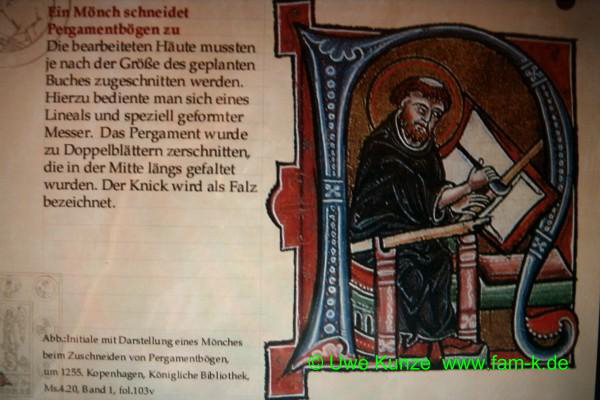 Ein Mönch schneidet
Pergamentbögen zu
Die bearbeiteten Häute mussten
je nach der Größe des geplanten
Buches zugeschnitten werden.
Hierzu bediente man sich eines
Lineals und speziell geformter
Messer. Das Pergament wurde
zu Doppelblättern zerschnitten,
die in der Mitte längs gefaltet
wurden. Der Knick wird als Falz
bezeichnet.
Abb.:Initiale mit Darstellung eines Mönches
beim Zuschneiden von Pergamentbögen,
um 1255. Kopenhagen, Königliche Bibliothek,
Ms.4.20, Band 1, fol.103v
© Uwe Kunze www.fam-k.de